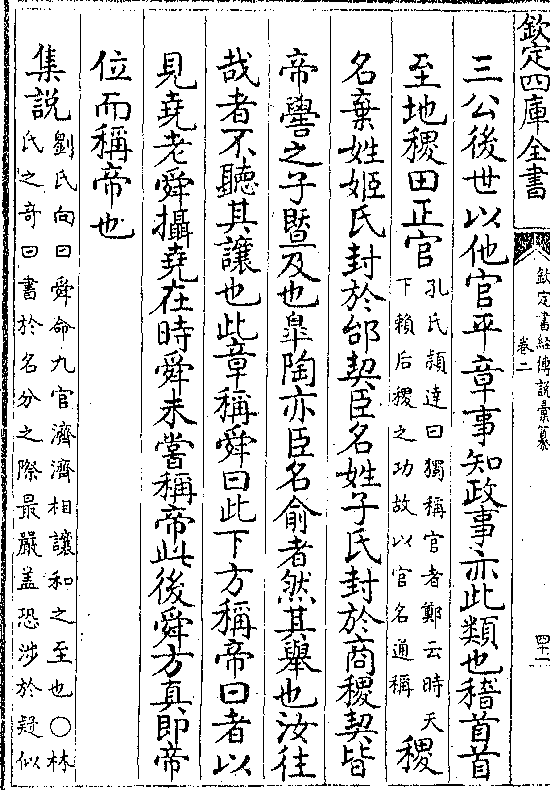 欽定四庫全書
欽定書經傳說彙纂
卷二
四十一
三公後世以他官平章事知政事亦此類也稽首首
至地稷田正官
孔氏穎達曰獨稱官者鄭云時天
下賴后稷之功故以官名通稱
稷
名棄姓姬氏封於邰契臣名姓子氏封於商稷契皆
帝嚳之子暨及也臯陶亦臣名俞者然其舉也汝往
哉者不聽其讓也此章稱舜曰此下方稱帝曰者以
見堯老舜攝堯在時舜未嘗稱帝此後舜方真即帝
位而稱帝也
集說
劉氏向曰舜命九官濟濟相讓和之至也○林
氏之奇曰書於名分之際最嚴盖恐涉於疑似